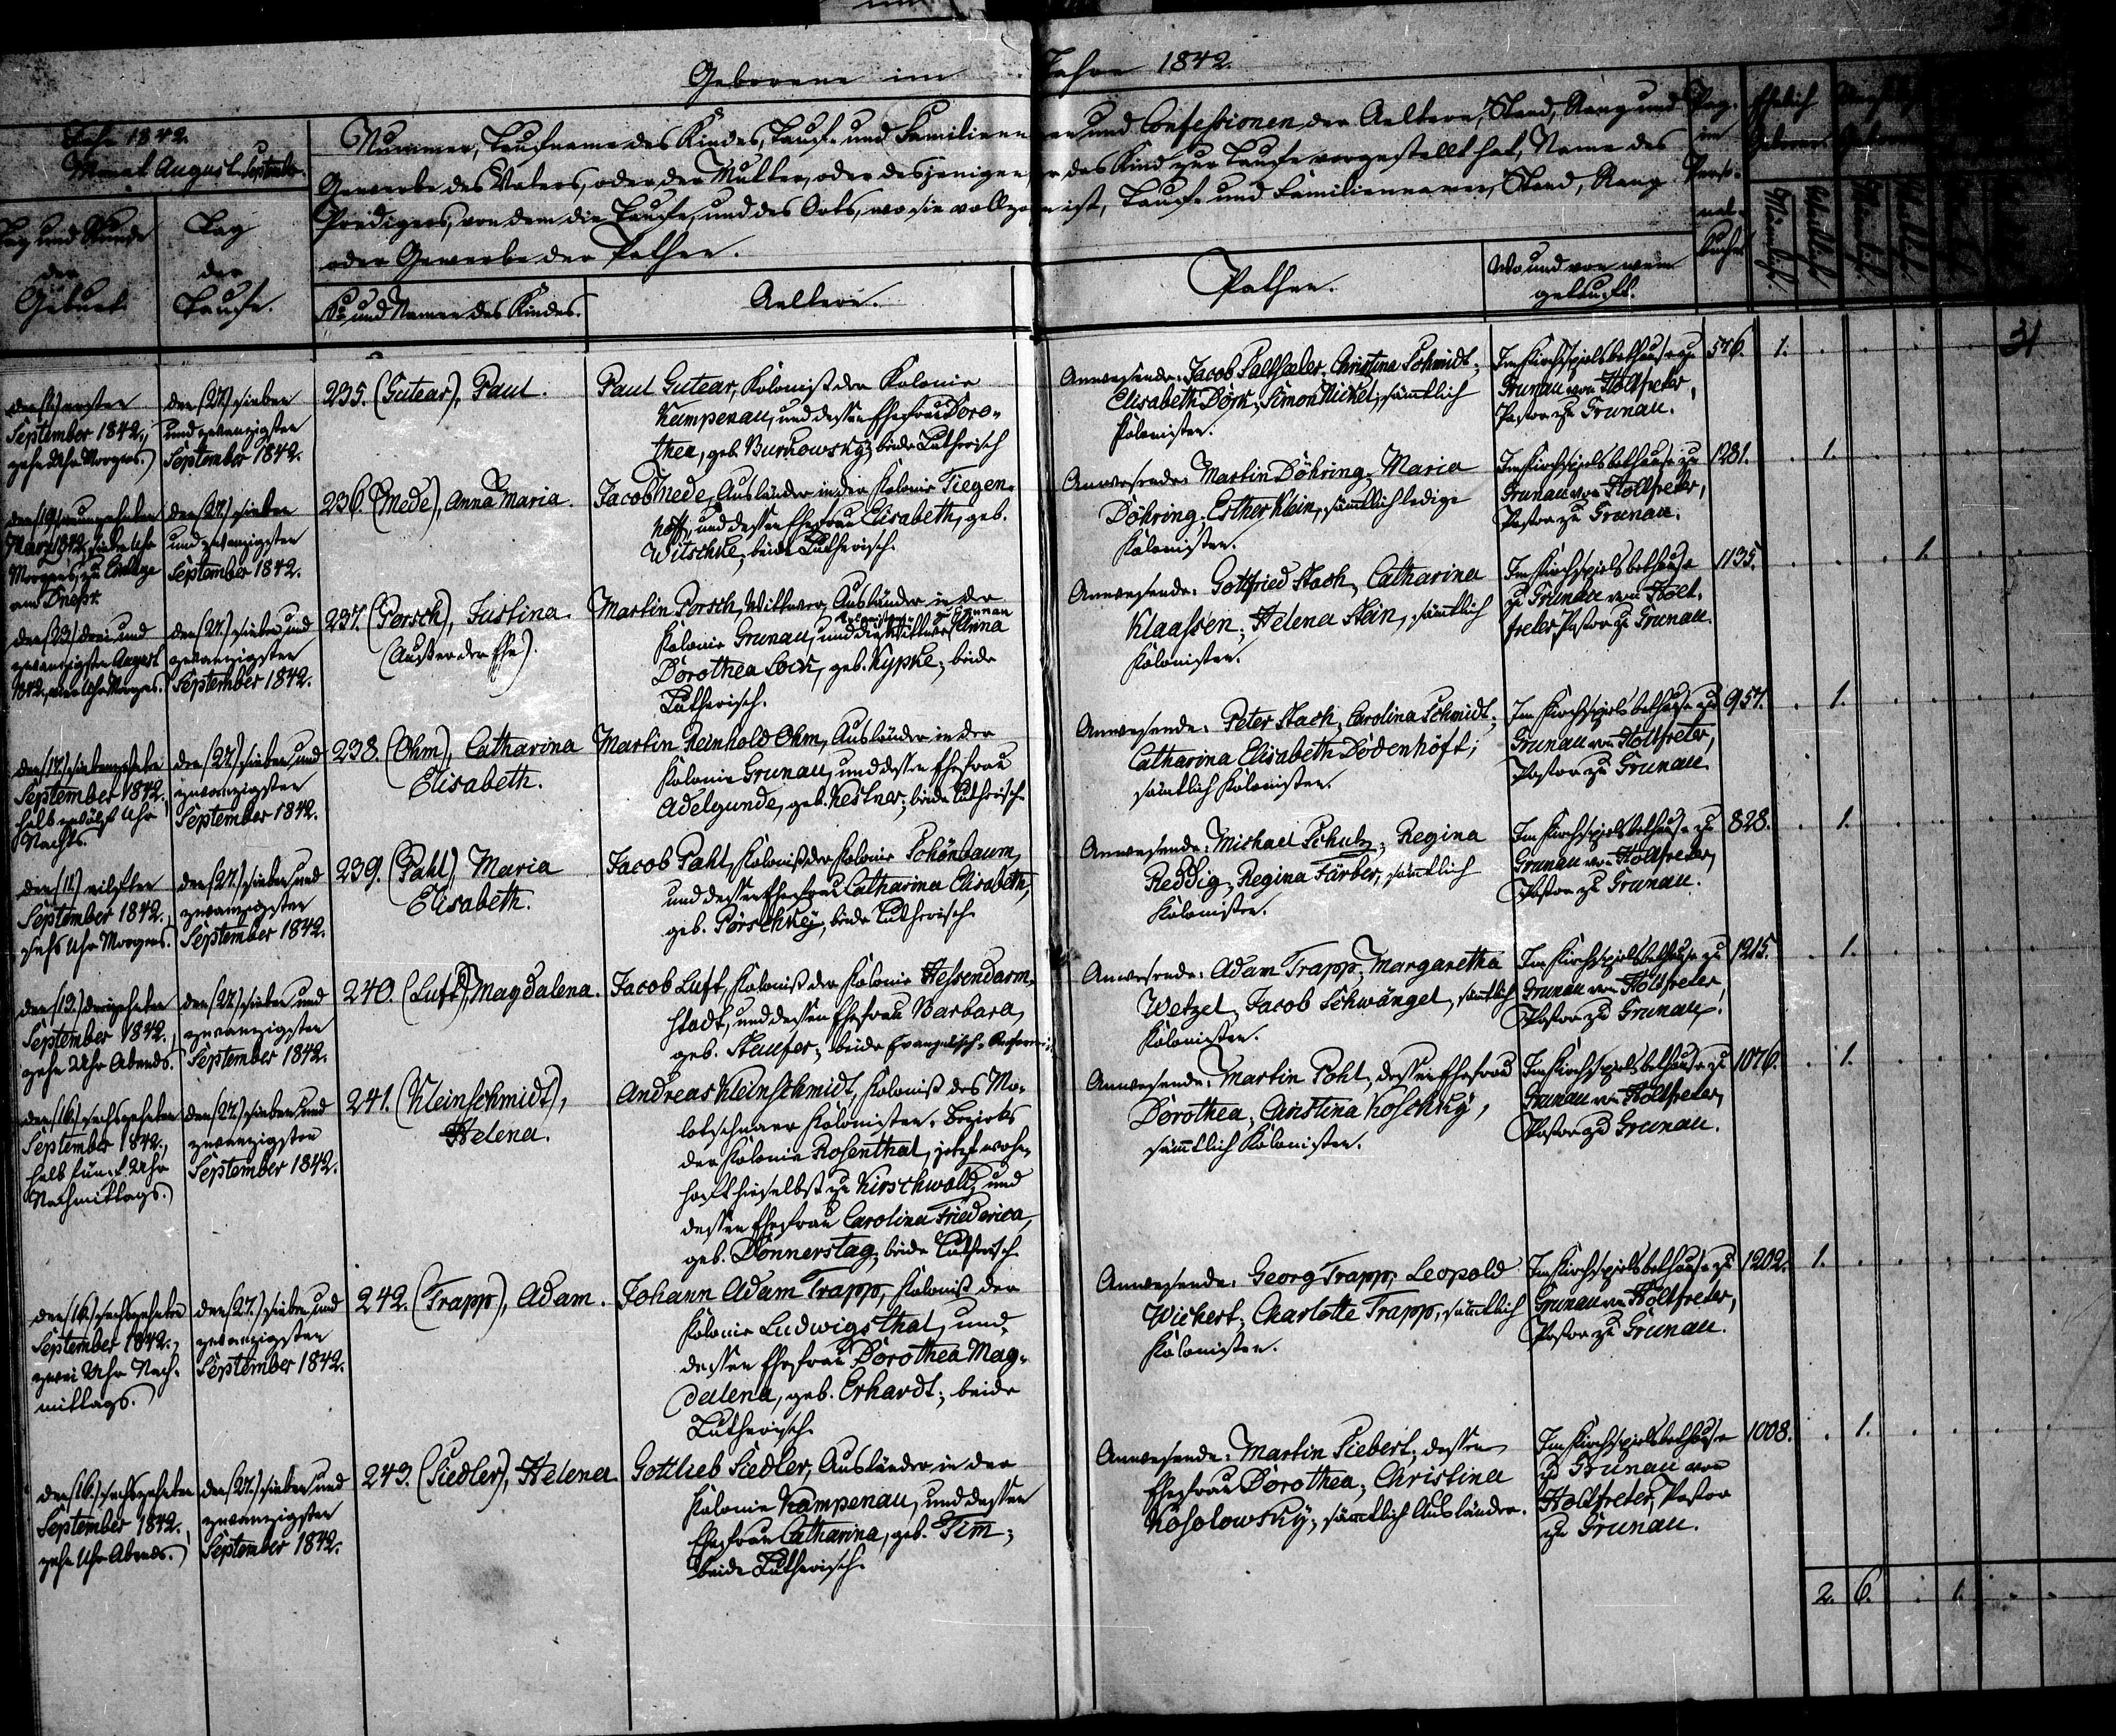 Geborene im Jahre 1842.
Jahr 1842.
Monat August. September.
Tag und Stunde
der
Geburt.
Tag
der
Taufe.
Nummer, Taufname des Kindes, Tauf- und Familiennamen und Confessionen der Aeltern, Stand, Rang und
Gewerbe des Vaters, oder der Mutter, oder desjenigen, der das Kind zur Taufe vorgestellt hat, Name des
Predigers, von dem die Taufe, und des Orts, wo sie vollzogen ist, Tauf- und Familiennamen, Stand, Rang
oder Gewerbe der Pathen.
No und Namen des Kindes.
Aeltern.
Pathen.
Wo und von wem
getauft.
Pag.
im
Perso-
nal-
buche
Ehelich
Geboren
Männlich.
Weiblich.
31
den (1) ersten
September 1842,
zehn Uhr Morgens.
den (27.) sieben
und zwanzigsten
September 1842.
235. (Gutear), Paul.
Paul Gutear, Kolonist der Kolonie
Kampenau, und dessen Ehefrau Doro-
thea, geb. Burkowsky; beide Lutherisch
Anwesende: Jacob Christina Schmidt;
Elisabeth Dörk; Simon Nickel, sämtlich
Kolonisten.
Im Kirchspielsbethause zu
Grunau von Holtfreter,
Pastor zu Grunau.
576. 1.
den (19) neunzehnten
März 1842, sieben Uhr
Morgens, zu Einlage
am Dnepr.
den (27.) sieben
und zwanzigsten
September 1842.
236. (Mede), Anna Maria.
Jacob Mede, Ausländer in der Kolonie Tiegen-
hoff, und dessen Ehefrau Elisabeth, geb.
Witschke; beide Lutherisch.
Anwesende: Martin Döhring; Maria
Döhring; Esther Klein, sämtlich ledige
Kolonisten.
Im Kirchspielsbethause zu
Grunau von Holtfreter,
Pastor zu Grunau.
1281. 1.
den (23) drei und
zwanzigsten August
1842, vier Uhr Morgens.
den (27.) sieben und
zwanzigsten
September 1842.
237. (Porsch), Justina
(Außer der Ehe).
Martin Porsch, Wittwer, Ausländer in der
Kolonie Grunau, und die Wittwe Anna
Dorothea Lock, geb. Kypke; beide
Lutherisch.
Anwesende: Gottfried Stach, Catharina
Klaassen; Helena Stein, sämtlich
Kolonisten.
Im Kirchspielsbethause
zu Grunau von Holt-
freter, Pastor zu Grunau.
1135. 1.
den (17.) siebenzehnten
September 1842.
halb zwölf Uhr
Nachts.
den (27.) sieben und
zwanzigsten
September 1842.
238. (Ohm), Catharina
Elisabeth.
Martin Reinhold Ohm, Ausländer in der
Kolonie Grunau, und dessen Ehefrau
Adelgunde, geb. Kestner; beide Lutherisch
Anwesende: Peter Stach, Carolina Schmidt;
Catharina Elisabeth Dödenhöft;
sämtlich Kolonisten.
Im Kirchspielsbethause zu
Grunau von Holtfreter,
Pastor zu Grunau.
957. 1.
den (11) eilften
September 1842.,
sechs Uhr Morgens.
den (27.) sieben und
zwanzigsten
September 1842.
239. (Pahl) Maria
Elisabeth.
Jacob Pahl, Kolonist der Kolonie Schönbaum,
und dessen Ehefrau Catharina Elisabeth,
geb. Pörschkey, beide Lutherisch.
Anwesende: Michael Schulz; Regina
Reddig; Regina Färber, sämtlich
Kolonisten.
Im Kirchspielsbethause zu
Grunau von Holtfreter,
Pastor zu Grunau.
828. 1.
den (13.) dreizehnten
September 1842.,
zehn Uhr Abends.
den (27.) sieben und
zwanzigsten
September 1842.
240. (Luft), Magdalena.
Jacob Luft, Kolonist der Kolonie Hessendarm-
stadt, und dessen Ehefrau Barbara,
geb. Staufer; beide Evangelisch-Reformirt
Anwesende: Adam Trapp; Margaretha
Wetzel; Jacob Schwängel, sämtlich
Kolonisten.
Im Kirchspielsbethause zu
Grunau von Holtfreter,
Pastor zu Grunau.
1215. 1.
den (16.) sechszehnten
September 1842.,
halb fünf Uhr
Nachmittags.
den (27.) sieben und
zwanzigsten
September 1842.
241. (Kleinschmidt),
Helena.
Andreas Kleinschmidt, Kolonist des Mo-
lotschnaer Kolonisten-Bezirks
der Kolonie Rosenthal, jetzt wohn-
haft hieselbst zu Kirschwald, und
dessen Ehefrau Carolina Friederica,
geb. Donnerstag; beide Lutherisch
Anwesende: Martin Pohl, dessen Ehefrau
Dorothea; Christina Koschky,
sämtlich Kolonisten.
Im Kirchspielsbethause zu
Grunau von Holtfreter,
Pastor zu Grunau.
1076. 1.
den (16.) sechszehnten
September 1842.,
zwei Uhr Nach-
mittags.
den (27.) sieben und
zwanzigsten
September 1842.
242. (Trapp), Adam.
Johann Adam Trapp, Kolonist der
Kolonie Ludwigsthal, und
dessen Ehefrau Dorothea Mag-
dalena, geb. Erhardt; beide
Lutherisch.
Anwesende: Georg Trapp; Leopold
Wickert; Charlotte Trapp, sämtlich
Kolonisten.
Im Kirchspielsbethause zu
Grunau von Holtfreter,
Pastor zu Grunau.
1202. 1.
den (16.) sechszehnten
September 1842.,
zehn Uhr Abends.
den (27.) sieben und
zwanzigsten
September 1842.
243. (Siedler), Helena
Gottlieb Siedler, Ausländer in der
Kolonie Kampenau, und dessen
Ehefrau Catharina, geb. Tim;
beide Lutherisch
Anwesende: Martin Siebert; dessen
Ehefrau Dorothea; Christina
Kosolowsky; sämtlich Ausländer.
Im Kirchspielsbethause
zu Grunau von
Holtfreter, Pastor
zu Grunau.
1008. 1.
2. 6. 1.